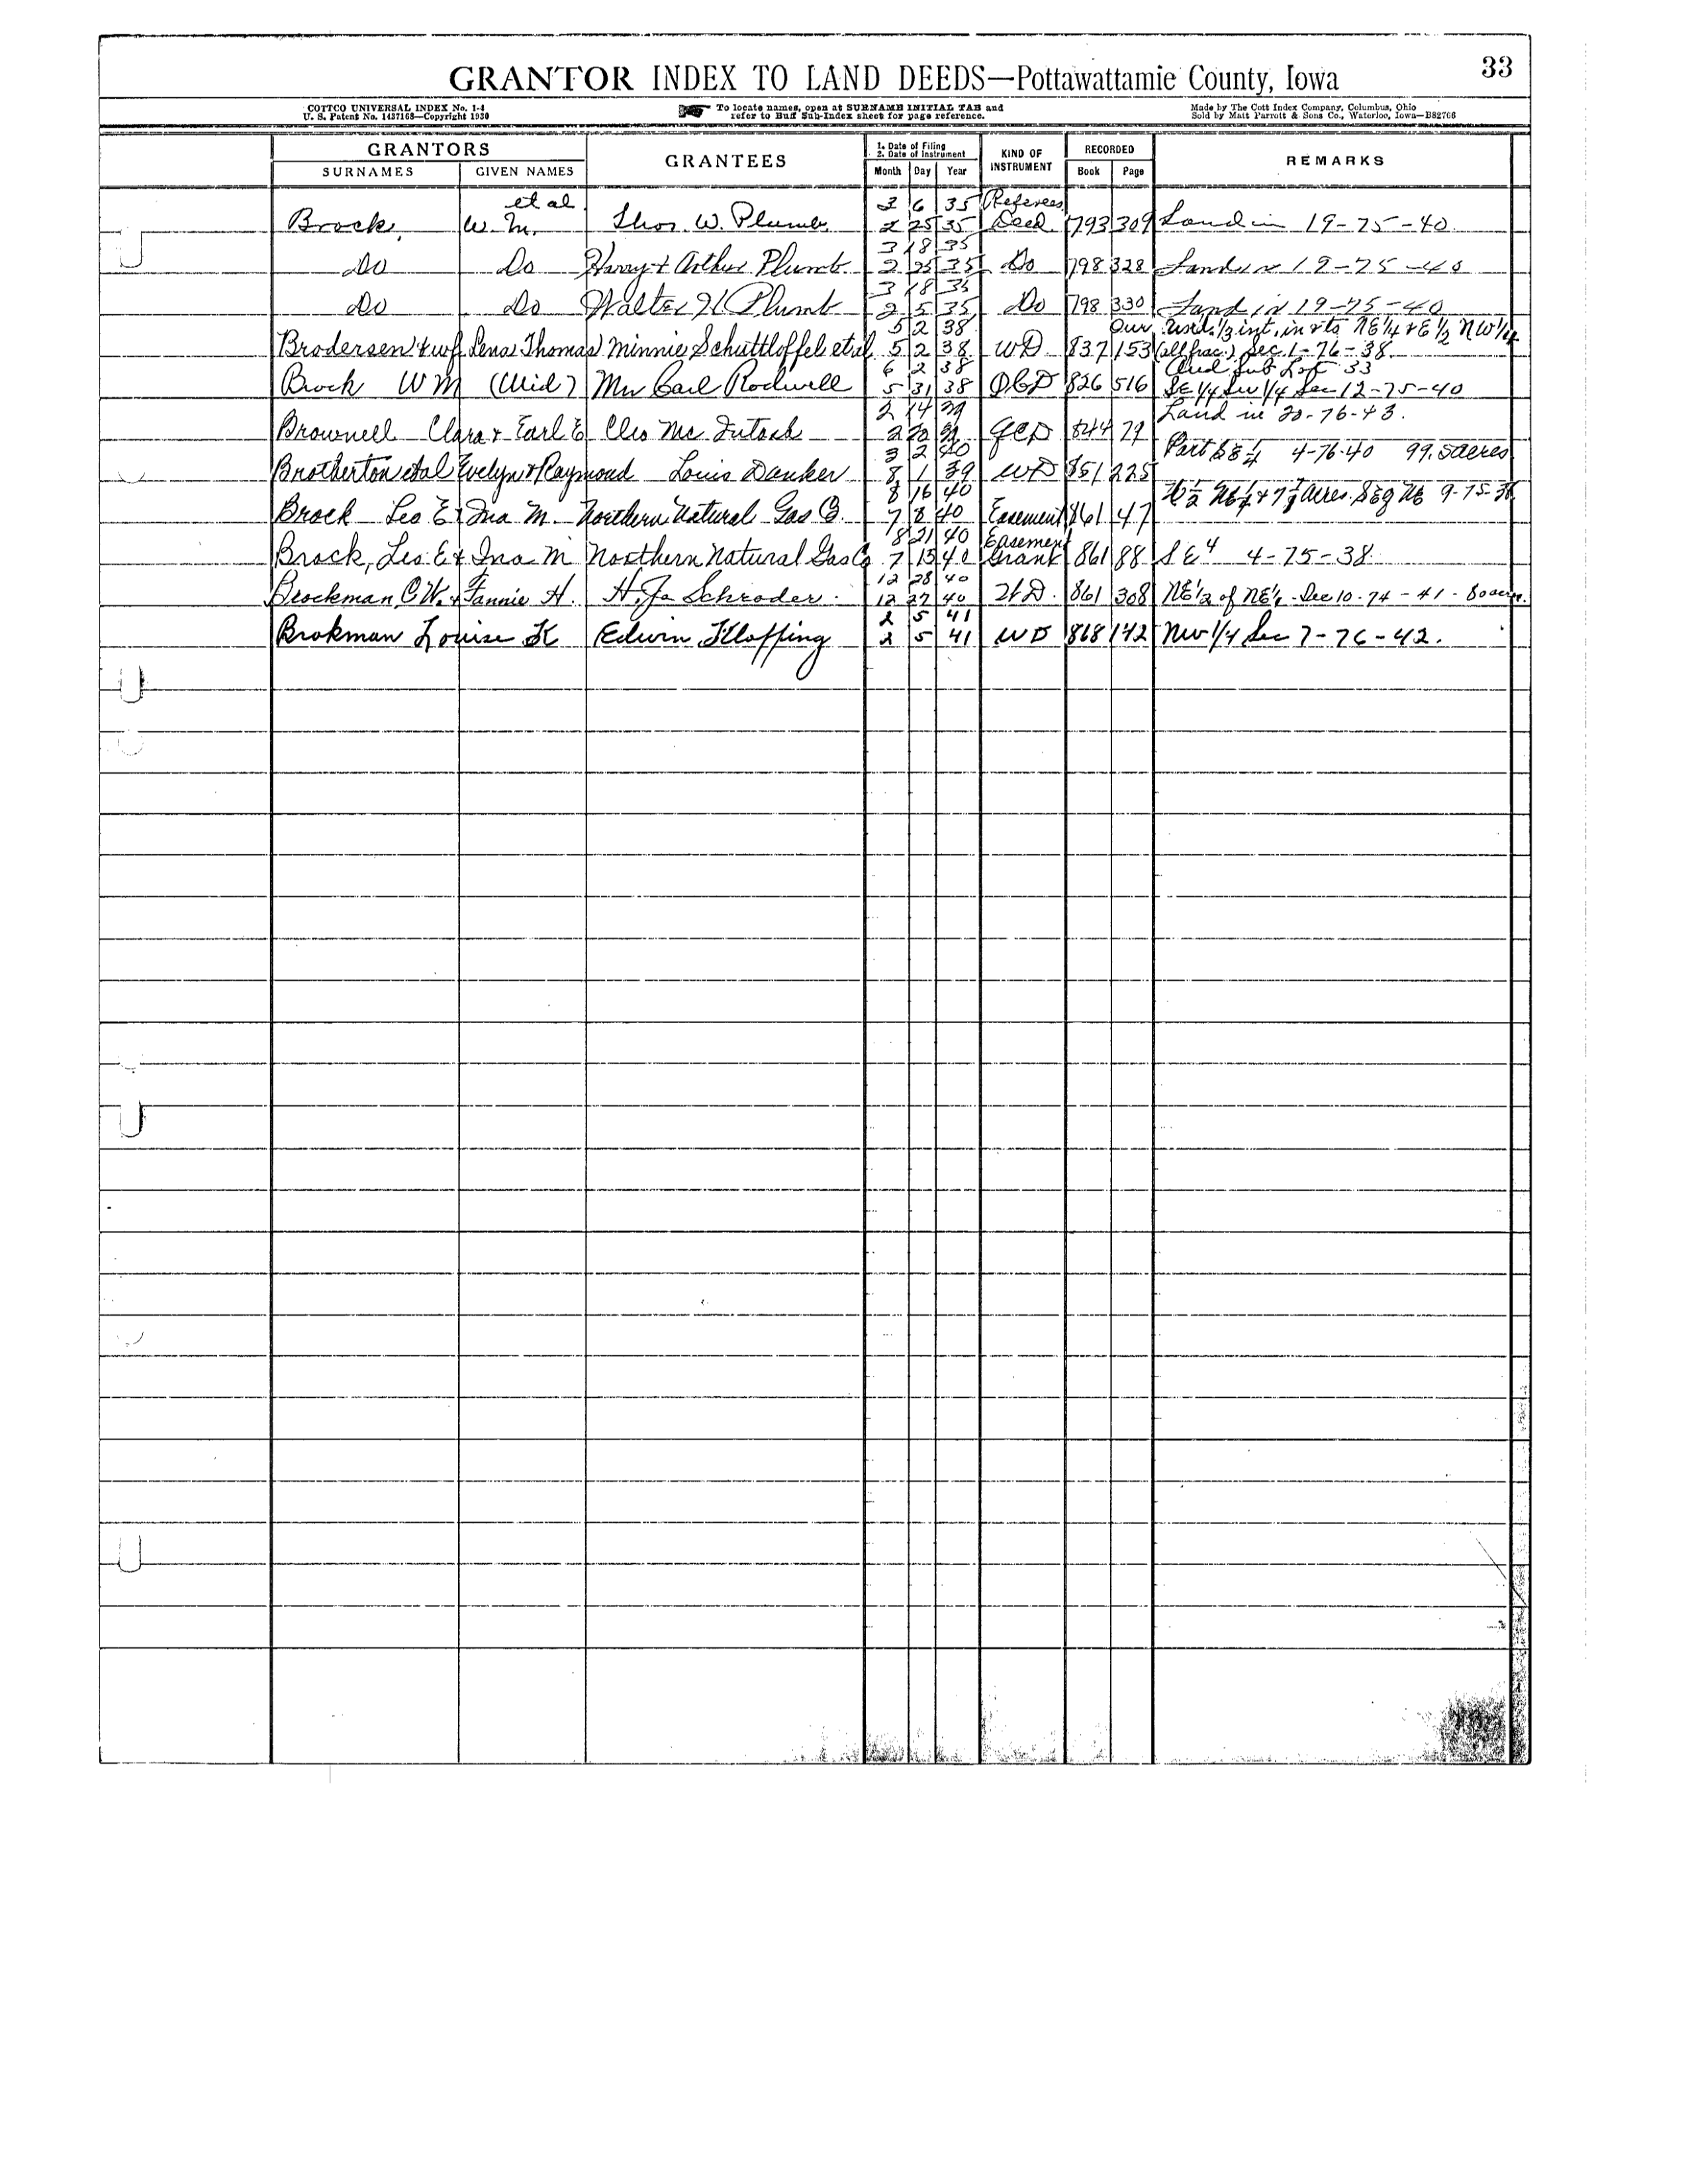 33
GRANTOR INDEX TO LAND DEEDS—Pottawattamie County, Iowa
COTTCO UNIVERSAL INDEX No. 1-4
U. S. Patent No. 1437168—Copyright 1930
To locate names, open at SURNAME INITIAL TAB and
refer to Buff Sub-Index sheet for page reference.
Made by The Cott Index Company, Columbus, Ohio
Sold by Matt Parrott & Sons Co., Waterloo, Iowa—B82766
GRANTORS
SURNAMES GIVEN NAMES
GRANTEES
1. Date of Filing
2. Date of Instrument
Month Day Year
KIND OF
INSTRUMENT
RECORDED
Book Page
REMARKS
et al 3 6 35 Referees
Brock, W. M. Thos. W. Plumb 2 25 35 Deed 793 309 Land in 19-75-40
3 18 35
Do Do Harry & Arthur Plumb 2 25 35 Do 798 328 Land in 19-75-40
3 18 35
Do Do Walter H Plumb 2 5 35 Do 798 330 Land in 19-75-40
5 2 38 Our und. 1/3 int. in & to NE 1/4 & E 1/2 NW 1/4
Brodersen & wf Lena Thomas Minnie Schuttloffel et al 5 2 38 WD 837 153 (all frac.) Sec. 1-76-38
6 2 38 Aud Sub Lot 33
Brock WM (Wid) Mrs Carl Rodwell 5 31 38 QCD 826 516 SE 1/4 SW 1/4 Sec 12-75-40
2 14 39 Land in 20-76-43.
Brownell Clara & Earl E Cleo Mc Intosh 2 QCD 844
3 2 40 Part 4-76-40 99.5 acres
Brotherton et al Evelyn & Raymond Louis Danker 8 1 39 WD 851 225
8 16 40 Acres 9-75-38
Brock Leo E & Ina M. Northern Natural Gas Co. 7 8 40 Easement 861 47
8 21 40 Easement
Brock, Leo E & Ina M Northern Natural Gas Co 7 13 40 Grant 861 88 SE4 4-75-38
12 28 40
Brockman C W. & Fannie H. H. Schroder. 12 27 40 W.D. 861 308 NE 1/2 of NE 1/4 - Sec 10-74-41 - 80 acres.
2 5 41
Brokman Louise K Edwin Klopping 2 5 41 WD 868 142 NW 1/4 Sec 7-76-42.